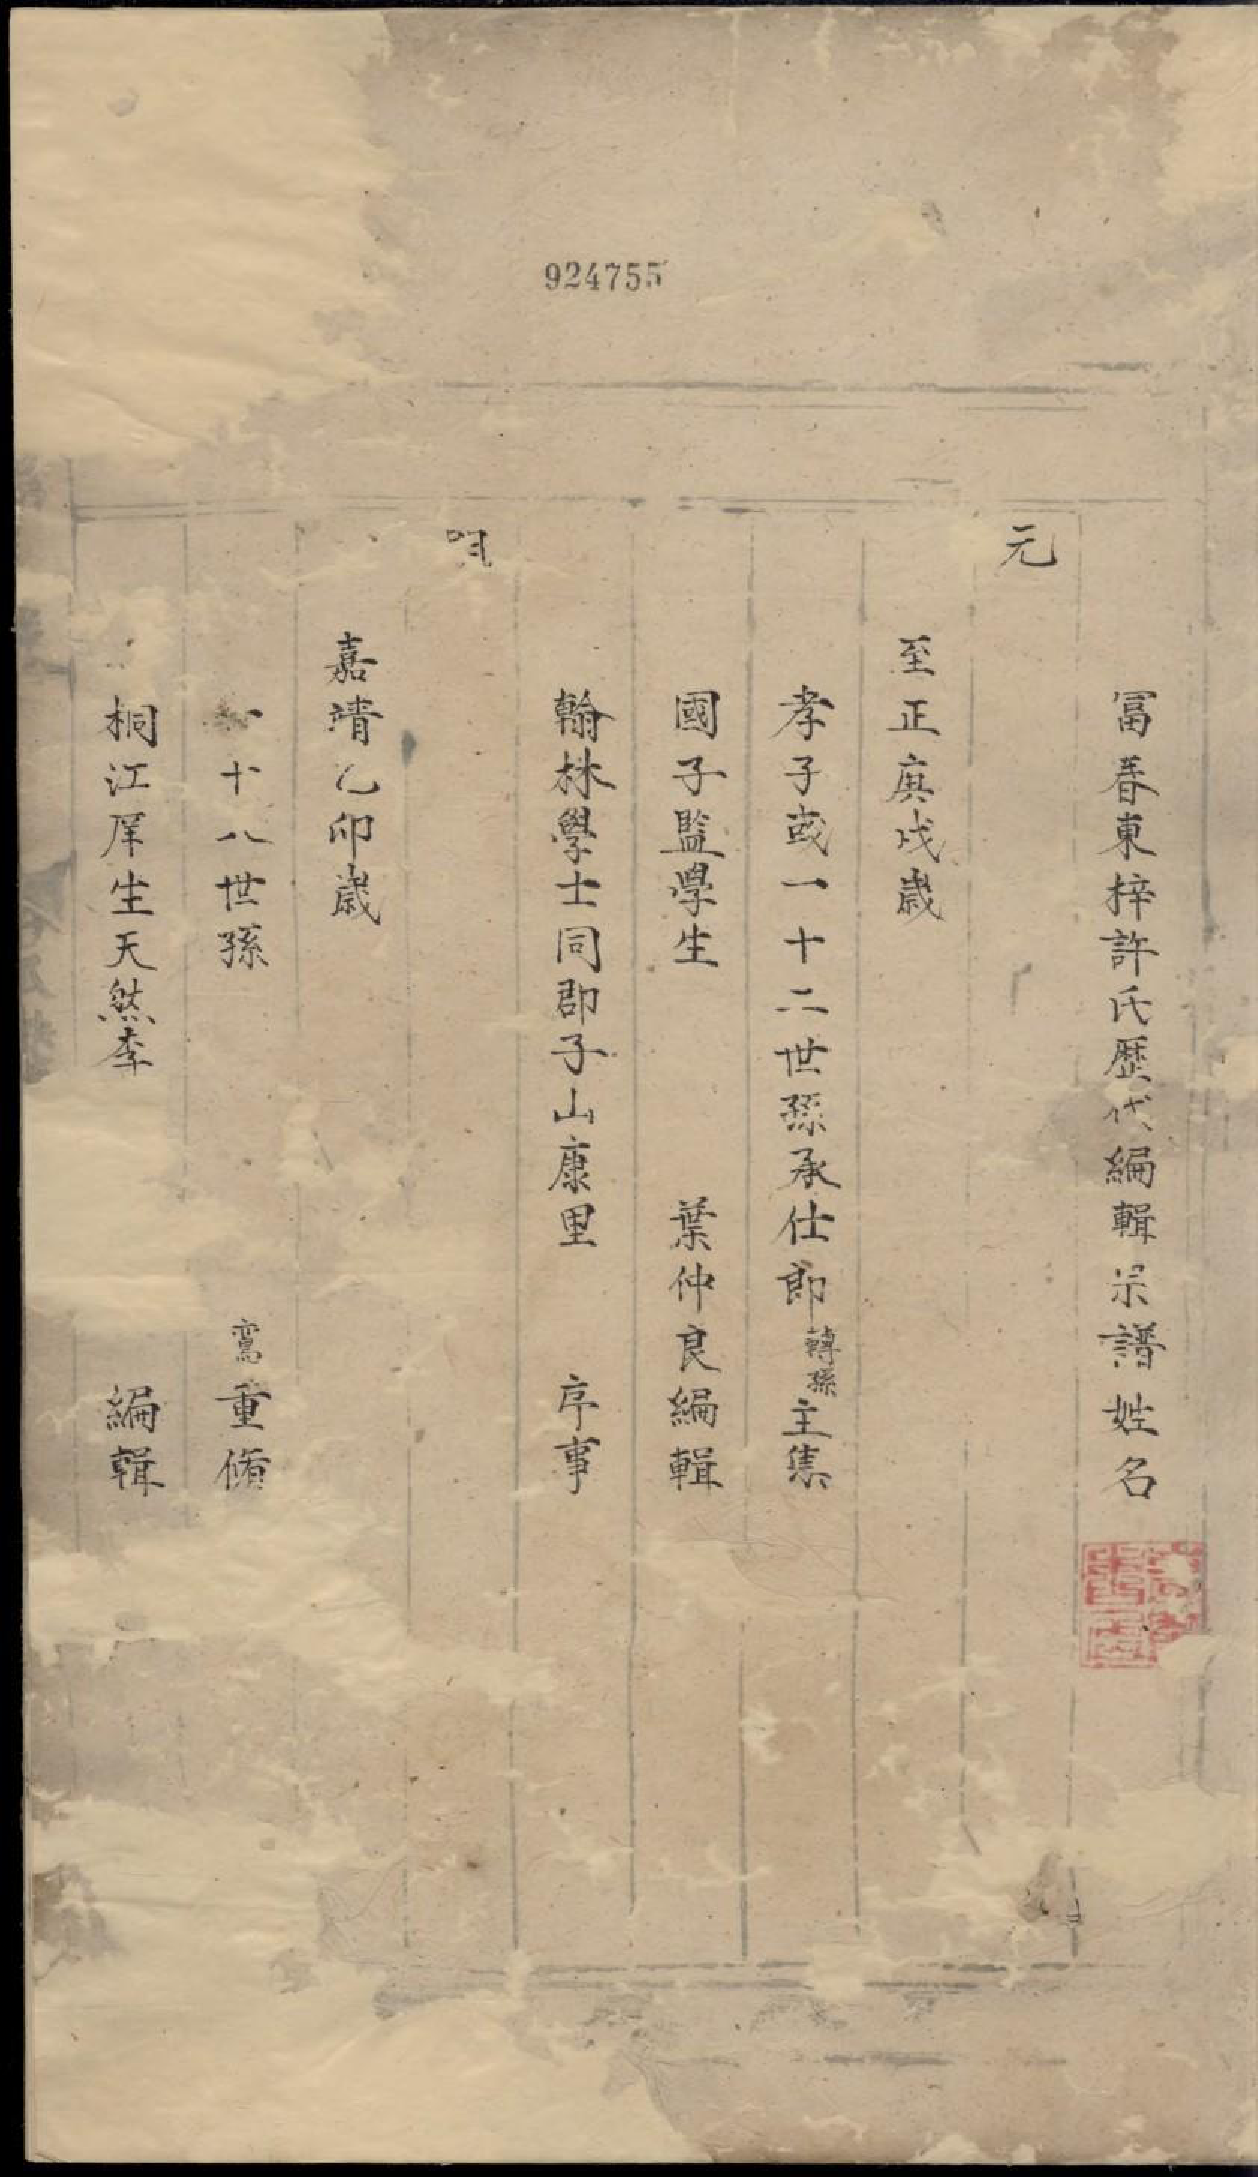 924755
富春東梓許氏歷代編輯宗譜姓名
元
至正庚戌歲
孝子彧一十二世孫承仕郎轉孫主集
國子監學生 葉仲良編輯
翰林學士同郡子山康里 序事
明
嘉靖乙卯歲
十八世孫 鸞重脩
桐江庠生天然李 編輯